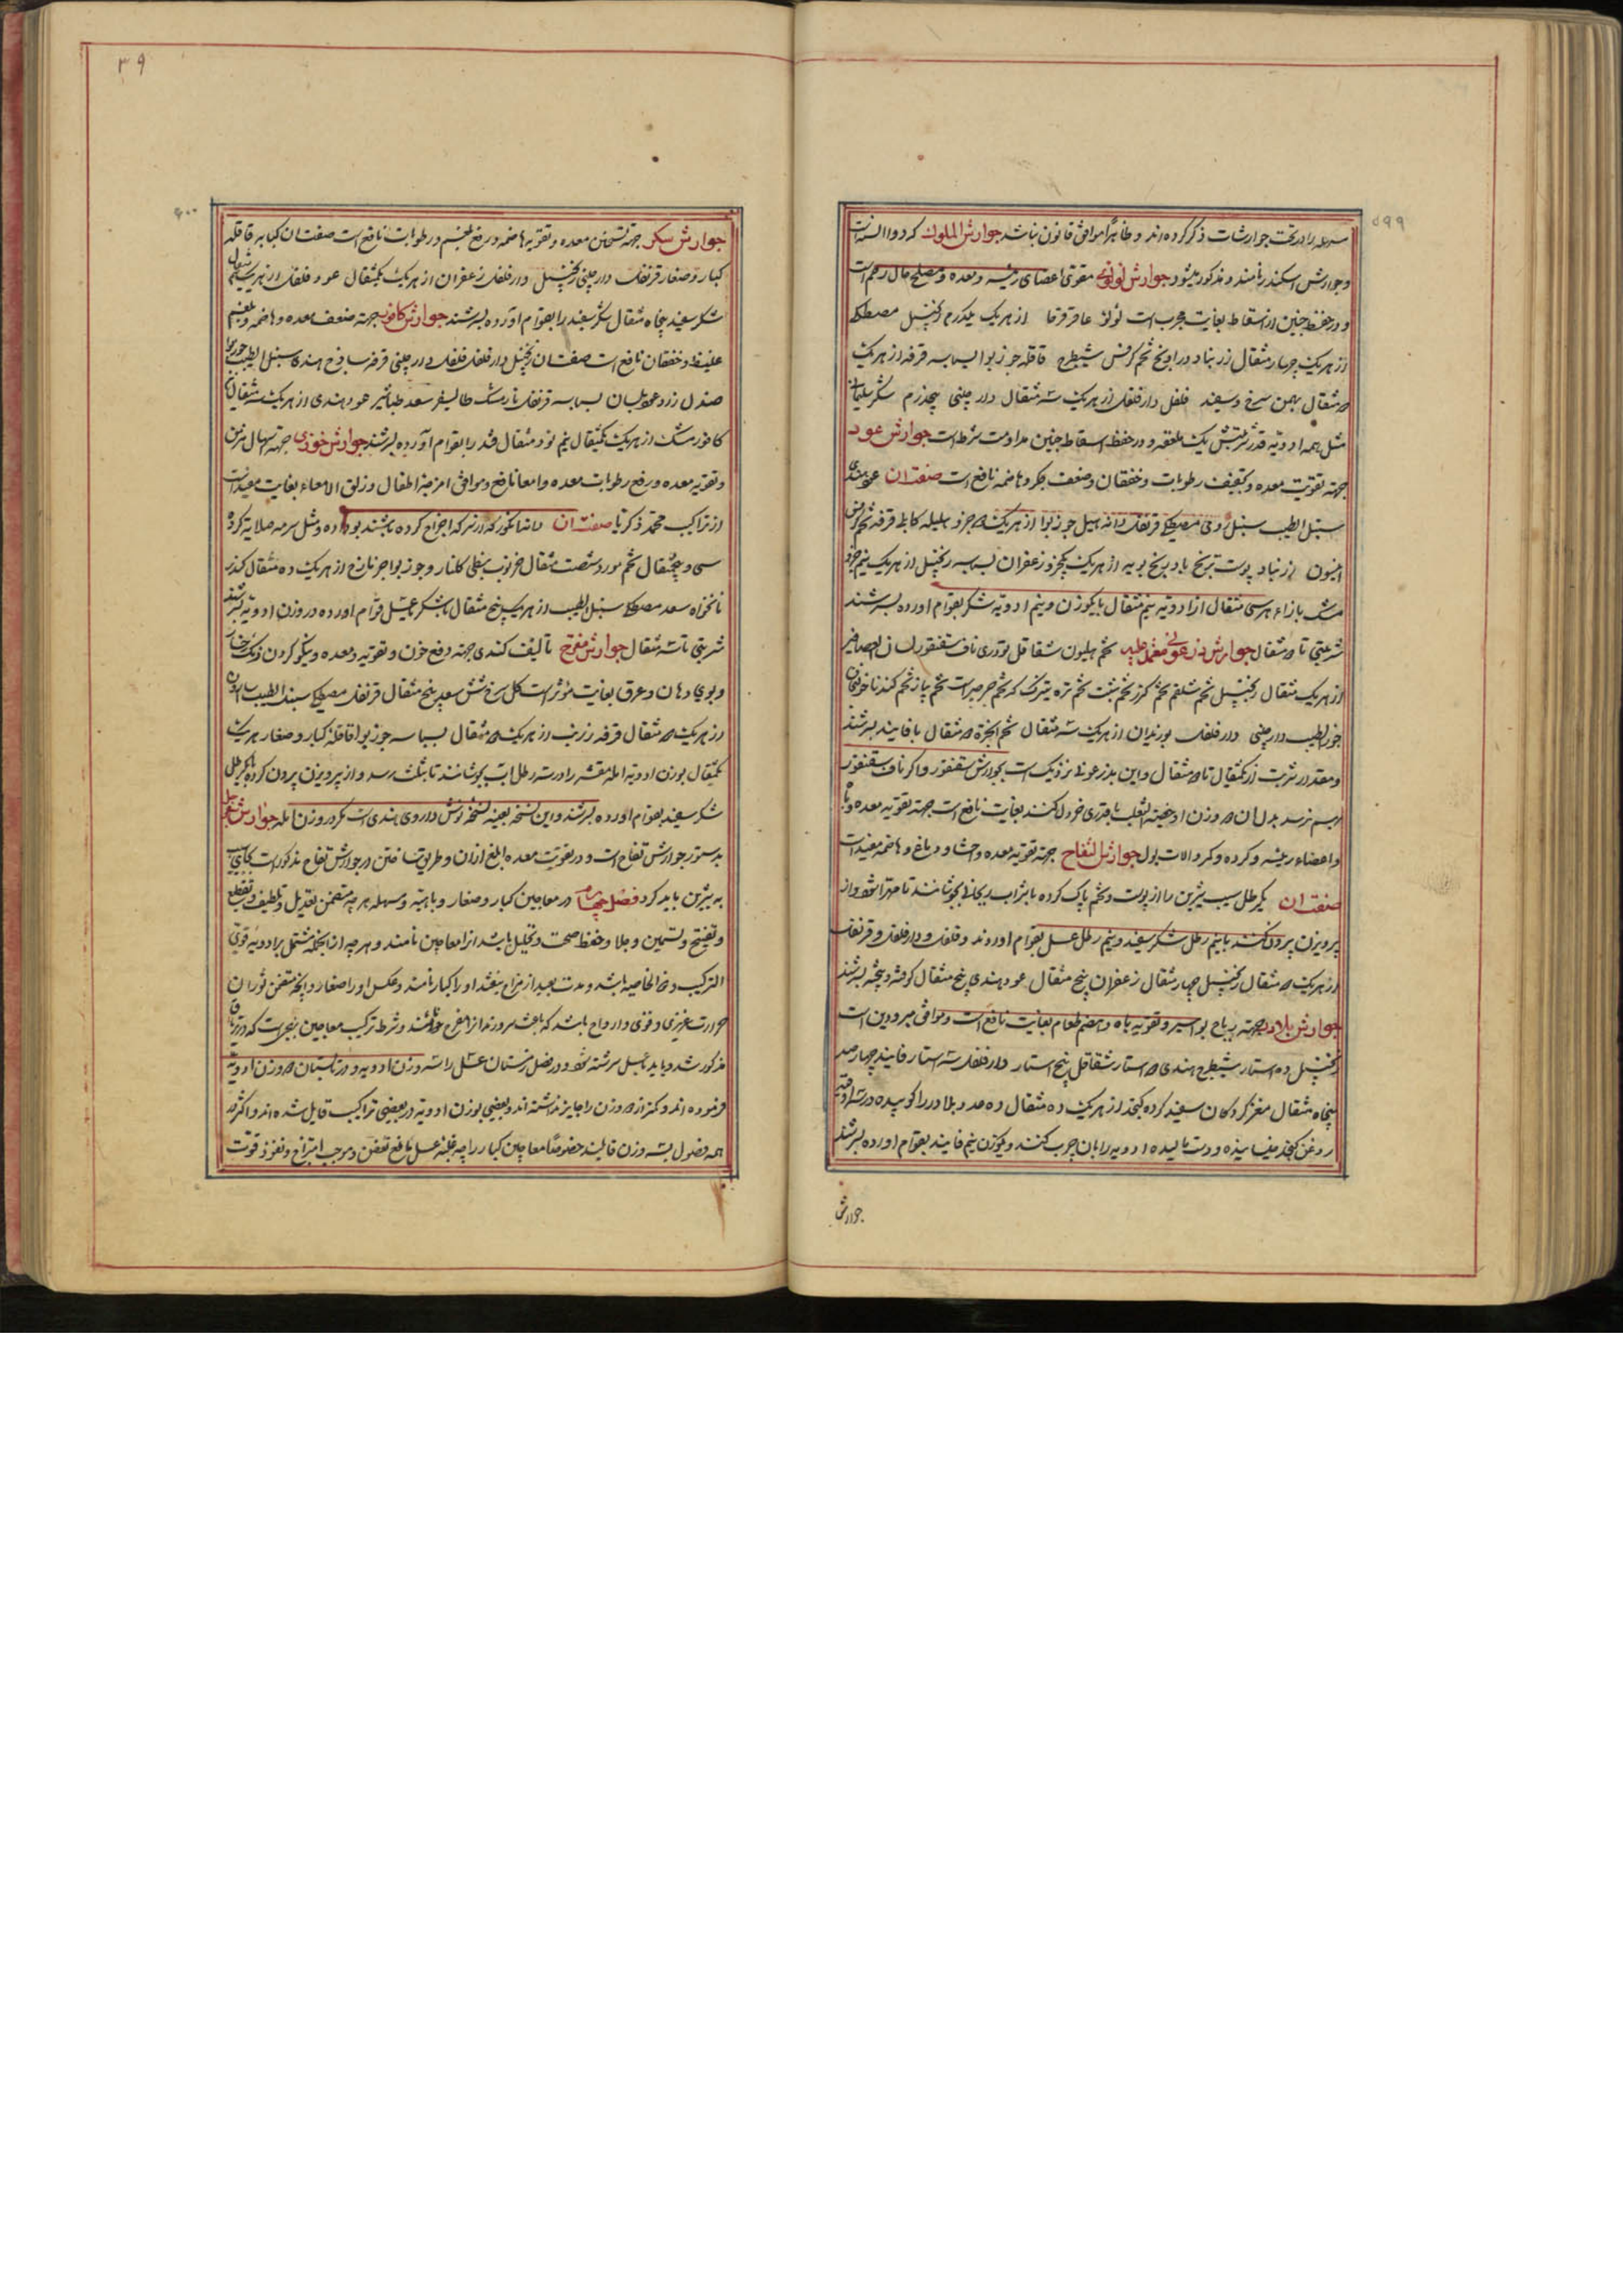 ۵۹۹
سهله را در تحت جوارشات ذکر کرده‌اند و ظاهراً موافق قانون نباشد جوارش الملوک که دوا السنه است
و جوارش اسکندر نامند و مذکور میشود جوارش لولوئی مقوی اعضای رئیسه و معده و مصلح حال رحم است
و در حفظ جنین از اسقاط بغایت مجرب است لولو عاقرقرحا از هر یک یکدرم زنجبیل مصطکی
از هر یک چهار مثقال زرنباد درونج تخم کرفس شیطرج قاقله جوزبوا بسباسه قرفه از هر یک
دو مثقال بهمن سرخ و سفید فلفل دارفلفل از هر یک سه مثقال دارچینی پنجدرم شکر سلیمانی
مثل همه ادویه قدر شربتش یک ملعقه و در حفظ اسقاط جنین مداومت شرط است جوارش عود
جهته تقویت معده و تجفیف رطوبات و خفقان و ضعف جگر و هاضمه نافع است صفت آن عود هندی
سنبل الطیب سنبل رومی مصطکی قرنفل دانه هیل جوزبوا از هر یک دو جزو هلیله کابلی قرفه تخم کرفس
انیسون زرنباد پوست ترنج بادرنجبویه از هر یک یکجزو زعفران بسباسه زنجبیل از هر یک نیم جزو
مشک بازاء هر سی مثقال از ادویه نیم مثقال با یکوزن و نیم ادویه شکر بقوام آورده بسرشند
شربتی تا دو مثقال جوارش زرعونی معمل طیبه تخم هلیون شقاقل تودری ناف سقنقور لسان العصافیر
از هر یک مثقال زنجبیل تخم شلغم تخم گزر تخم شبت تخم تره تیزک که تخم جرجیر است تخم پیاز تخم گندنا خولنجان
جوزالطیب دارچینی دارفلفل بوزیدان از هر یک سه مثقال تخم انجره دو مثقال با فانیذ بسرشند
و مقدار شربت از یکمثقال تا دو مثقال و این بزرعونی نزدیک است بجوارش سقنقور و اگر ناف سقنقور
بهم نرسد بدل آن دو وزن او خصیة الثعلب با قدری خردل کنند بغایت نافع است جهته تقویه معده و باه
و اعضاء رئیسه و گرده و کمر و آلات بول جوارش تفاح جهته تقویه معده و احشا و دماغ و هاضمه مفید است
صفت آن یکرطل سیب شیرین را از پوست و تخم پاک کرده با شراب ریحانی بجوشانند تا مهرا شود و از
پرویزن بیرون کنند با نیم رطل شکر سفید و نیم رطل عسل بقوام آورند و فلفل و دارفلفل و قرنفل
از هر یک دو مثقال زنجبیل چهار مثقال زعفران پنج مثقال عود هندی پنج مثقال کوفته و بیخته بسرشند
جوارش بلادر جهته ریاح بواسیر و تقویه باه و هضم طعام بغایت نافع است و موافق مبرودین است
زنجبیل ده استار شیطرج هندی دو استار شقاقل پنج استار دارفلفل سه استار فانیذ چهار صد
پنجاه مثقال مغز گردکان سفید کرده کنجد از هر یک ده مثقال ده عدد بلادر را کوبیده در سه اوقیه
روغن کنجد بخیسانیده و دست مالیده ادویه را بآن چرب کنند و بوزن نیم فانیذ بقوام آورده بسرشند
جوارش
۳۹
۶۰۰
جوارش سکر جهته تسخین معده و تقویه هاضمه و رفع بلغم و رطوبات نافع است صفت آن کبابه قاقله
کبار و صغار قرنفل دارچینی زنجبیل دارفلفل زعفران از هر یک یکمثقال عود فلفل از هر یک نیم مثقال
شکر سفید پنجاه مثقال شکر سفید را بقوام آورده بسرشند جوارش کافور جهته ضعف معده و هاضمه و بلغم
غلیظ و خفقان نافع است صفت آن زنجبیل دارفلفل فلفل دارچینی قرفه ساذج هندی سنبل الطیب جوزبوا
صندل زرد عود بلسان بسباسه قرنفل نارمشک طالیسفر سعد طباشیر عود هندی از هر یک سه مثقال
کافور مشک از هر یک یکمثقال نیم نود مثقال قند را بقوام آورده بسرشند جوارش خوزی جهته اسهال مزمن
و تقویه معده و رفع رطوبات معده و امعا نافع و موافق امزجه اطفال و زلق الامعاء بغایت مفید است
از تراکیب محمد ذکریا صفت آن دانه انگور که از سرکه اخراج کرده باشند بو داده و مثل سرمه صلایه کرده
سی و پنجمثقال تخم مورد شصت مثقال خرنوب نبطی گلنار و جوزبوا جزمازج از هر یک ده مثقال کندر
نانخواه سعد مصطکی سنبل الطیب از هر یک پنج مثقال با شکر یا عسل قوام آورده دو وزن ادویه بسرشند
شربتی تا سه مثقال جوارش مفرح تالیف کندی جهته دفع حزن و تقویه معده و نیکو کردن رنگ رخسار
و بوی دهان و عرق بغایت مؤثر است گل سرخ شش سعد پنج مثقال قرنفل مصطکی سنبل الطیب اسارون
از هر یک دو مثقال قرفه زرنب از هر یک دو مثقال بسباسه جوزبوا قاقله کبار و صغار هر یک
یکمثقال بوزن ادویه آمله مقشر را در سه رطل آب بجوشانند تا بثلث رسد و از پرویزن بیرون کرده با یکرطل
شکر سفید بقوام آورده بسرشند و این نسخه بعینه نسخه نوش داروی هندی است مگر در وزن آمله جوارش سفرجل
بدستور جوارش تفاح است و در تقویت معده ابلغ از آن و طریق ساختن در جوارش تفاح مذکور است بجای سیب
به شیرین باید کرد فصل چهارم در معاجین کبار و صغار و باهیه و مسهله هر چه متضمن تعدیل و تلطیف و تقطیع
و تفتیح و تسمین و جلا و حفظ صحت و تحلیل باشد آنرا معاجین نامند و هر چه از آنجمله مشتمل بر ادویه قوی
الترکیب و ذو الخاصیه باشد و مدت بعید از مزاج نیفتد او را کبار نامند و عکس او را صغار و آنچه متضمن ثوران
حرارت غریزی و قوی و ارواح باشد که باعث سرورند آنرا مفرح خوانند و شرط ترکیب معاجین بنحویست که در تریاق
مذکور شد و باید بعسل سرشته شود و در فصل زمستان عسل را سه وزن ادویه و در تابستان دو وزن ادویه
فرموده‌اند و کمتر از دو وزن را جایز نداشته‌اند و بعضی بوزن ادویه در بعضی تراکیب قایل شده‌اند و اکثر در
همه فصول بسه وزن قایلند خصوصاً معاجین کبار را چه غلبه عسل مانع تعفن و موجب امتزاج و نفوذ قوت